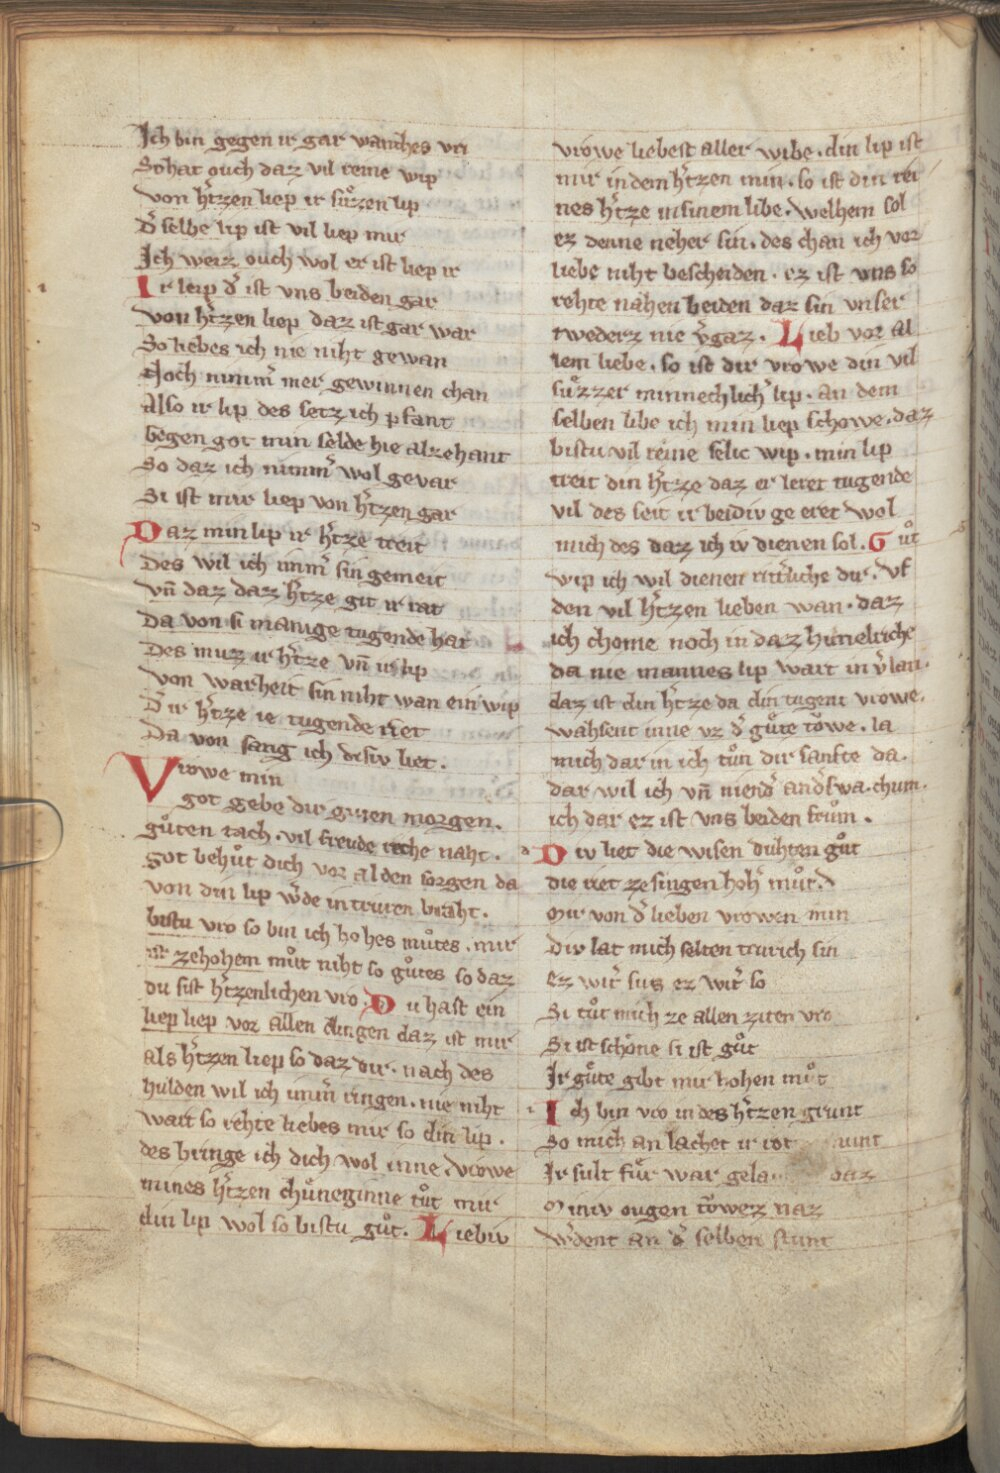 Ich bin gegen ir gar wanches vri
So hat ouch daz vil reine wip
von h̾tzen liep ir suͦzen lip
D̾ selbe lip ist vil liep mir
Ich weiz ouch wol er ist liep ir
Ir leip d̾ ist vns beiden gar
von h̾tzen liep daz ist gar war
So liebes ich nie niht gewan
Noch nimm̾ mer gewinnen chan
Also ir lip des setz ich pfant
gegen got min selde hie alzehant
So daz ich nimm̾ wol gevar
Si ist mir liep von h̾tzen gar
Daz min lip ir h̾tze treit
Des wil ich imm̾ sin gemeit
vn̄ daz daz h̾tze git ir rat
Da von si manige tugende hat
Des muz ir h̾tze vn̄ ir lip
von warheit sin niht wan ein wip
D̾ ir h̾tze ie tugende riet
Da von sang ich disiv liet.
Vrowe min
got gebe dir guten morgen.
guͦten tach. vil freude riche naht.
got behuͦt dich vor al den sorgen da
von din lip w̾de in truren braht.
bistu vro so bin ich hohes muͦtes. mir
ist zehohem muͦt niht so guͦtes so daz
du sist h̾tzenlichen vro. Du hast ein
liep liep vor allen dingen daz ist mir
als h̾tzen liep so daz dir. nach des
hulden wil ich imm̾ ringen. nie niht
wart so rehte liebes mir so din lip.
des bringe ich dich wol inne. vrowe
mines h̾tzen chuͦneginne tuͦt mir
din lip wol so bistu guͦt. Liebiv
vrowe liebest aller wibe. din lip ist
mir in dem h̾tzen min. so ist din rei
nes h̾tze in sinem libe. welhem sol
ez denne neher sin. des chan ich vor
liebe niht bescheiden. ez ist vns so
rehte nahen beiden daz sin vnser
twederz nie v̾gaz. Lieb vor al
lem liebe. so ist dir vrowe din vil
suͦzzer minnechlich̾ lip. an dem
selben libe ich min liep schowe. daz
bistu vil reine selic wip. min lip
treit din h̾tze daz er leret tugende
vil des seit ir beidiv ge eret wol
mich des daz ich iv dienen sol. Guͦt
wip ich wil dienen ritt̾liche dir. vf
den vil h̾tzen lieben wan. daz
ich chome noch in daz himelriche
da nie mannes lip wart in v̾lan.
daz ist din h̾tze da din tugent vrowe.
wahsent inne vz d̾ guͦte towe. la
mich dar in ich tuͦn dir sanfte da.
dar wil ich vn̄ niend̾ and̾swa. chum.
ich dar ez ist vns beiden frum.
Div liet die wisen duhten guͦt
die ret ze singen hoh̾ muͦt.
Mir von d̾ lieben vrowen min
Div lat mich selten trurich sin
ez wit̾ sus ez wit̾ so
Si tuͦt mich ze allen ziten vro
Si ist schone si ist guͦt
Ir guͦte gibt mir hohen muͦt
Ich bin vro in des h̾tzen grunt
So mich an lachet ir rot
Ir sult fuͦr war
Miniv ougen towez naz
w̾dent an d̾ selben stunt